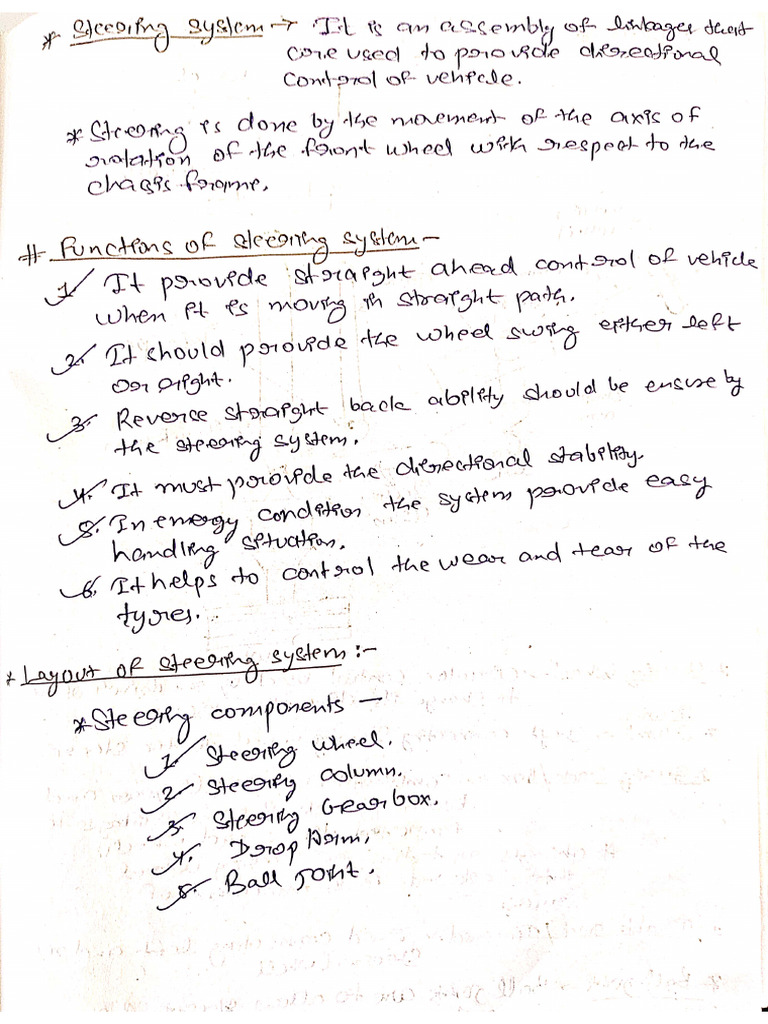 * Steering system → It is an assembly of linkages that
are used to provide directional
control of vehicle.
* Steering is done by the movement of the axis of
rotation of the front wheel with respect to the
chasis frame.
# Functions of steering system -
1. It provide straight ahead control of vehicle
when it is moving in straight path.
2. It should provide the wheel swing either left
or right.
3. Reverse straight back ability should be ensure by
the steering system.
4. It must provide the directional stability.
5. In energy condition the system provide easy
handling situation.
6. It helps to control the wear and tear of the
tyres.
* Layout of steering system :-
* Steering components —
1. Steering wheel.
2. Steering column.
3. Steering Gear box.
4. Drop Arm.
5. Ball joint.